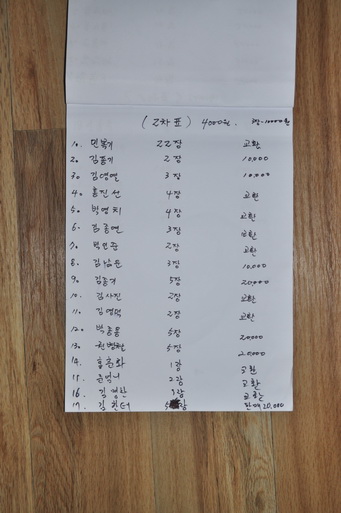 (2차표) 4000원.
1. 민복기 22장 교환
2. 김풍기 2장 10,000
3. 김영열 3장 10,000
4. 홍진선 4장 교환
5. 박영치 4장 교환
6. 김종연 3장 교환
7. 2장 교환
8. 김남은 3장 10,000
9. 김풍기 5장 20,000
10. 김사진 2장 교환
11. 김영덕 2장 교환
12. 박종웅 5장 20,000
13. 5장 20,000
14. 1장 교환
15. 2장 교환
16. 김경환 3장 교환
17. 5장 20,000